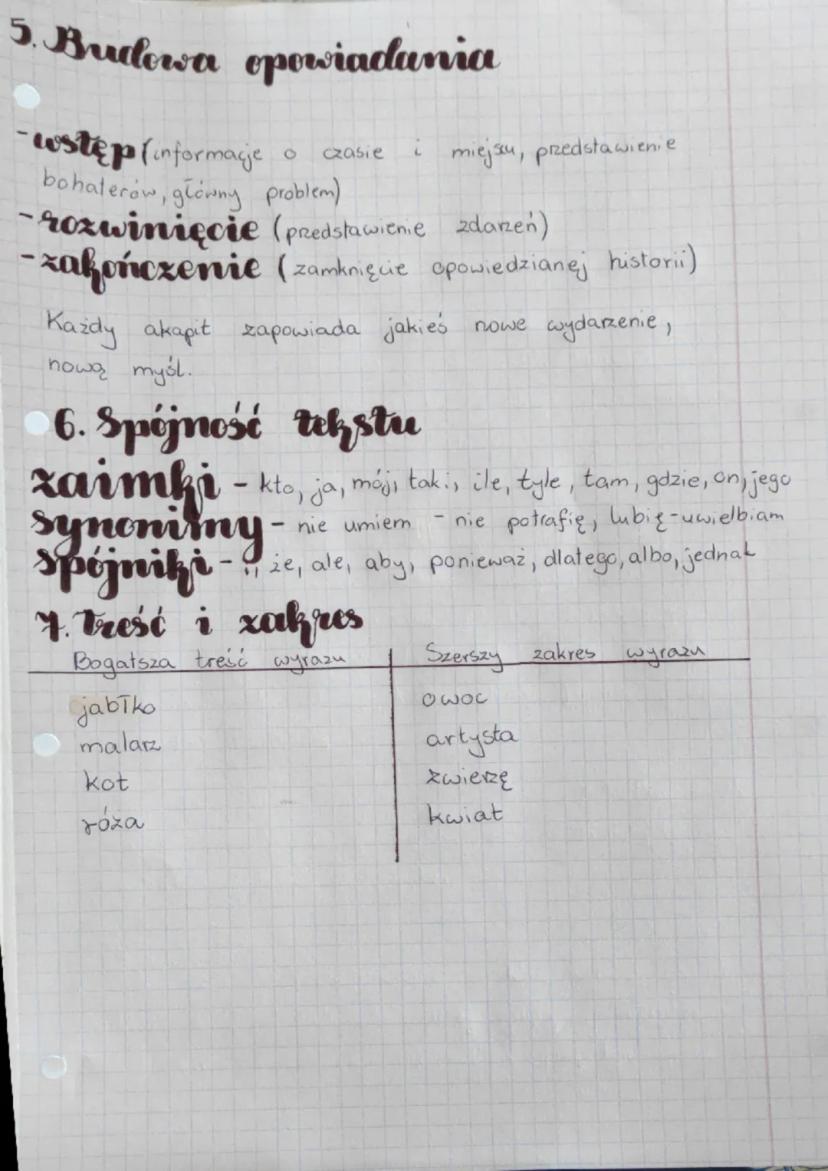 5. Budowa opowiadania
-wstęp (informacje o czasie i miejscu, przedstawienie
bohaterów, główny problem)
-rozwinięcie (przedstawienie zdarzeń)
-zakończenie (zamknięcie opowiedzianej historii)
Każdy akapit zapowiada jakieś nowe wydarzenie,
nową myśl.
6. Spójność tekstu
zaimki - kto, ja, mój, taki, ile, tyle, tam, gdzie, on, jego
synonimy - nie umiem - nie potrafię, lubię-uwielbiam
spójniki - i, że, ale, aby, ponieważ, dlatego, albo, jednak
7. Treść i zakres
Bogatsza treść wyrazu Szerszy zakres wyrazu
jabłko owoc
malarz artysta
kot zwierzę
róża kwiat